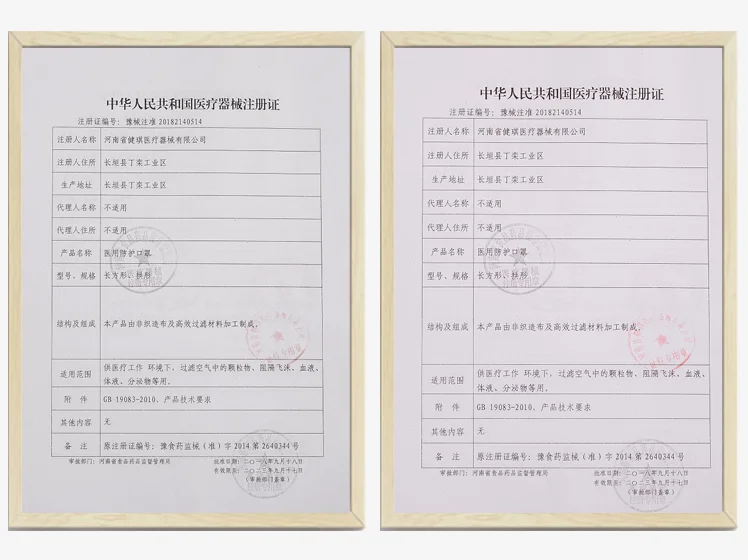 中华人民共和国医疗器械注册证
注册证编号：豫械注准 20182140514
注册人名称 河南省健琪医疗器械有限公司
注册人住所 长垣县丁栾工业区
生产地址 长垣县丁栾工业区
代理人名称 不适用
代理人住所 不适用
产品名称 医用防护口罩
型号、规格 长方形、拱形
结构及组成 本产品由非织造布及高效过滤材料加工制成。
适用范围 供医疗工作 环境下，过滤空气中的颗粒物、阻隔飞沫、血液、
体液、分泌物等用。
附 件 GB 19083-2010、产品技术要求
其他内容 无
备 注 原注册证编号：豫食药监械（准）字 2014 第 2640344 号
审批部门：河南省食品药品监督管理局 批准日期：二〇一八年九月十八日
有效期至：二〇二三年九月十七日
（审批部门盖章）
中华人民共和国医疗器械注册证
注册证编号：豫械注准 20182140514
注册人名称 河南省健琪医疗器械有限公司
注册人住所 长垣县丁栾工业区
生产地址 长垣县丁栾工业区
代理人名称 不适用
代理人住所 不适用
产品名称 医用防护口罩
型号、规格 长方形、拱形
结构及组成 本产品由非织造布及高效过滤材料加工制成。
适用范围 供医疗工作 环境下，过滤空气中的颗粒物、阻隔飞沫、血液、
体液、分泌物等用。
附 件 GB 19083-2010、产品技术要求
其他内容 无
备 注 原注册证编号：豫食药监械（准）字 2014 第 2640344 号
审批部门：河南省食品药品监督管理局 批准日期：二〇一八年九月十八日
有效期至：二〇二三年九月十七日
（审批部门盖章）